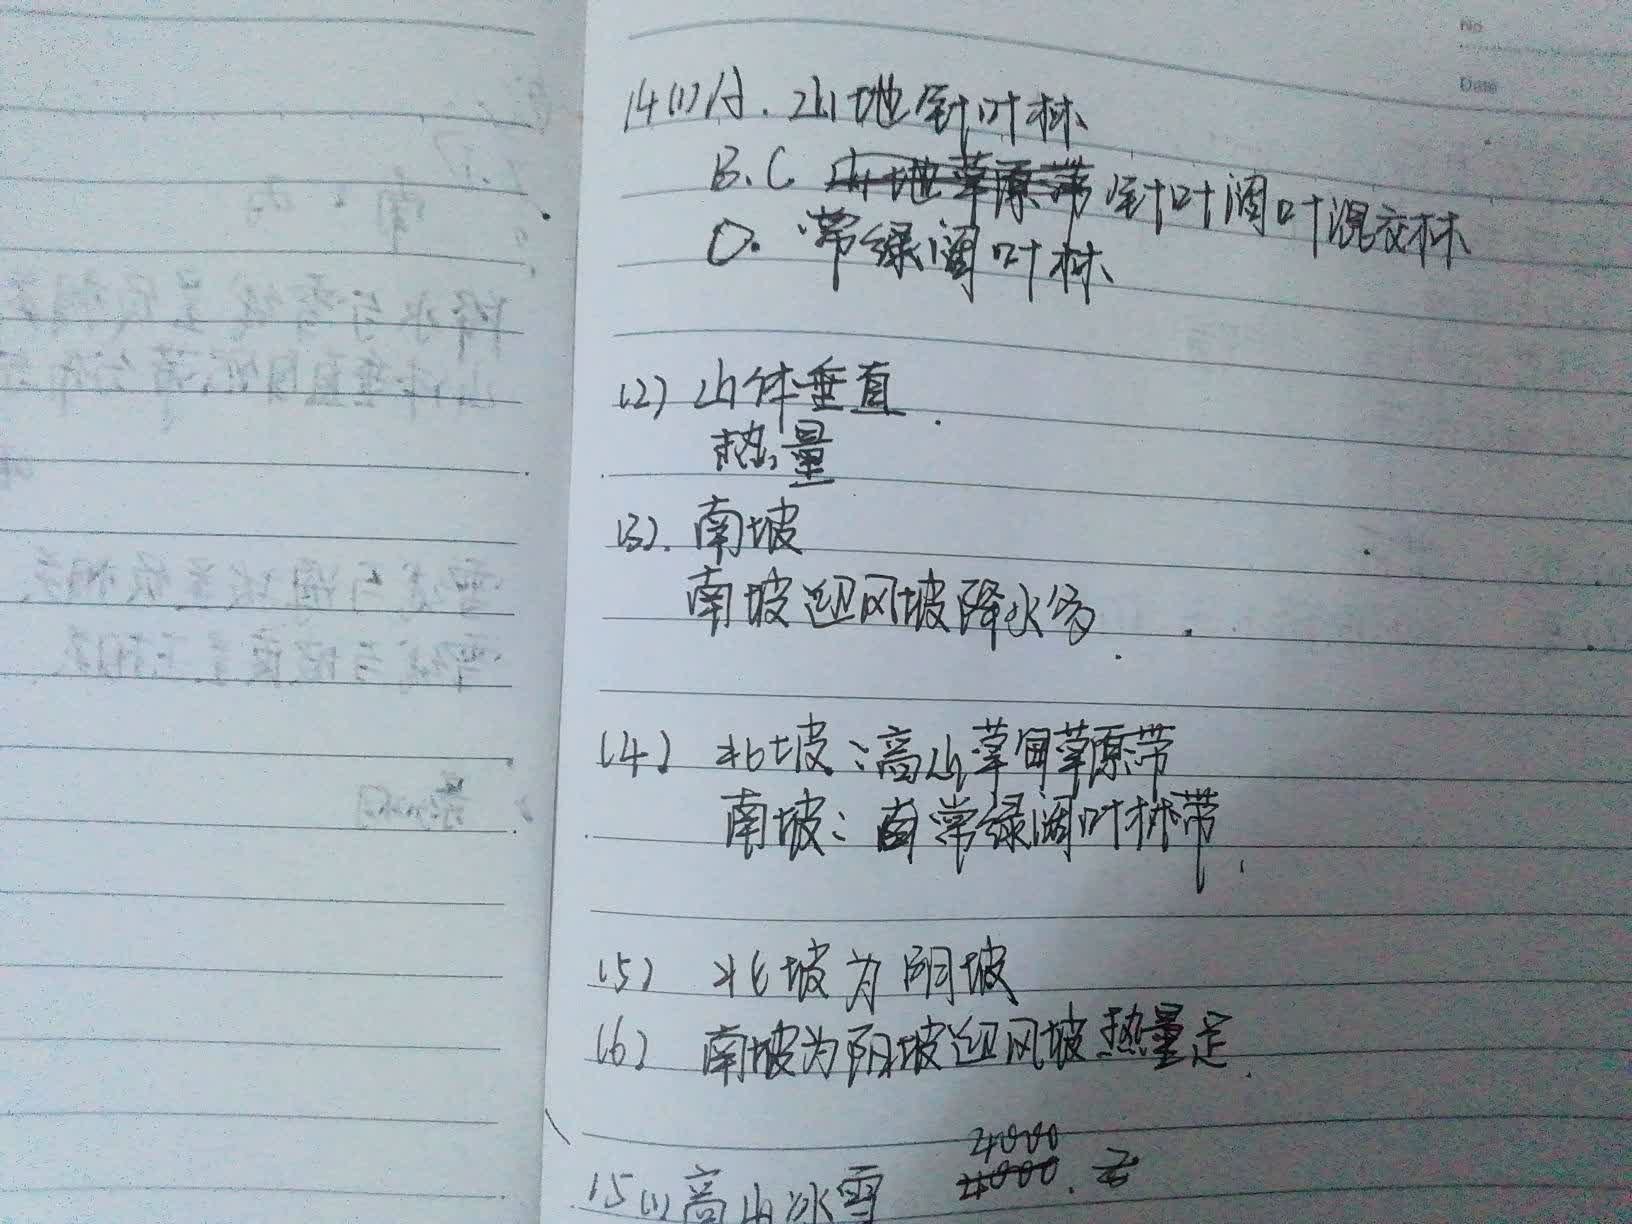 No
Date
14(1)A. 山地针叶林
B.C 山地草原带 针叶阔叶混交林
D. 常绿阔叶林
(2) 山体垂直
热量
(3). 南坡
南坡迎风坡降水多
(4) 北坡:高山草甸草原带
南坡: 常绿阔叶林带
(5) 北坡为阴坡
(6) 南坡为阳坡迎风坡热量足
4000
15(1)高山冰雪 4000.